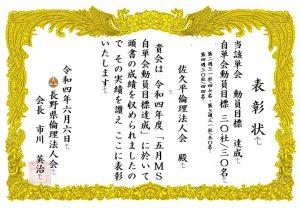 表彰状
当該単会 動員目標 達成
自単会動員目標 三〇社三〇名
佐久平倫理法人会 殿
貴会は 令和四年度「五月MS
自単会動員目標達成」に於いて
頭書の成績を収められましたの
で その実績を讃え ここに表彰
いたします
令和四年六月六日
長野県倫理法人会
会長 市川